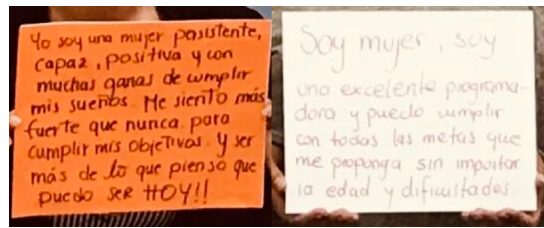 Yo soy una mujer persistente,
capaz, positiva y con
muchas ganas de cumplir
mis sueños. Me siento más
fuerte que nunca para
cumplir mis objetivos. Y ser
más de lo que pienso que
puedo SER HOY!!
Soy mujer, soy
una excelente programa-
dora y puedo cumplir
con todas las metas que
me proponga sin importar
la edad y dificultades.